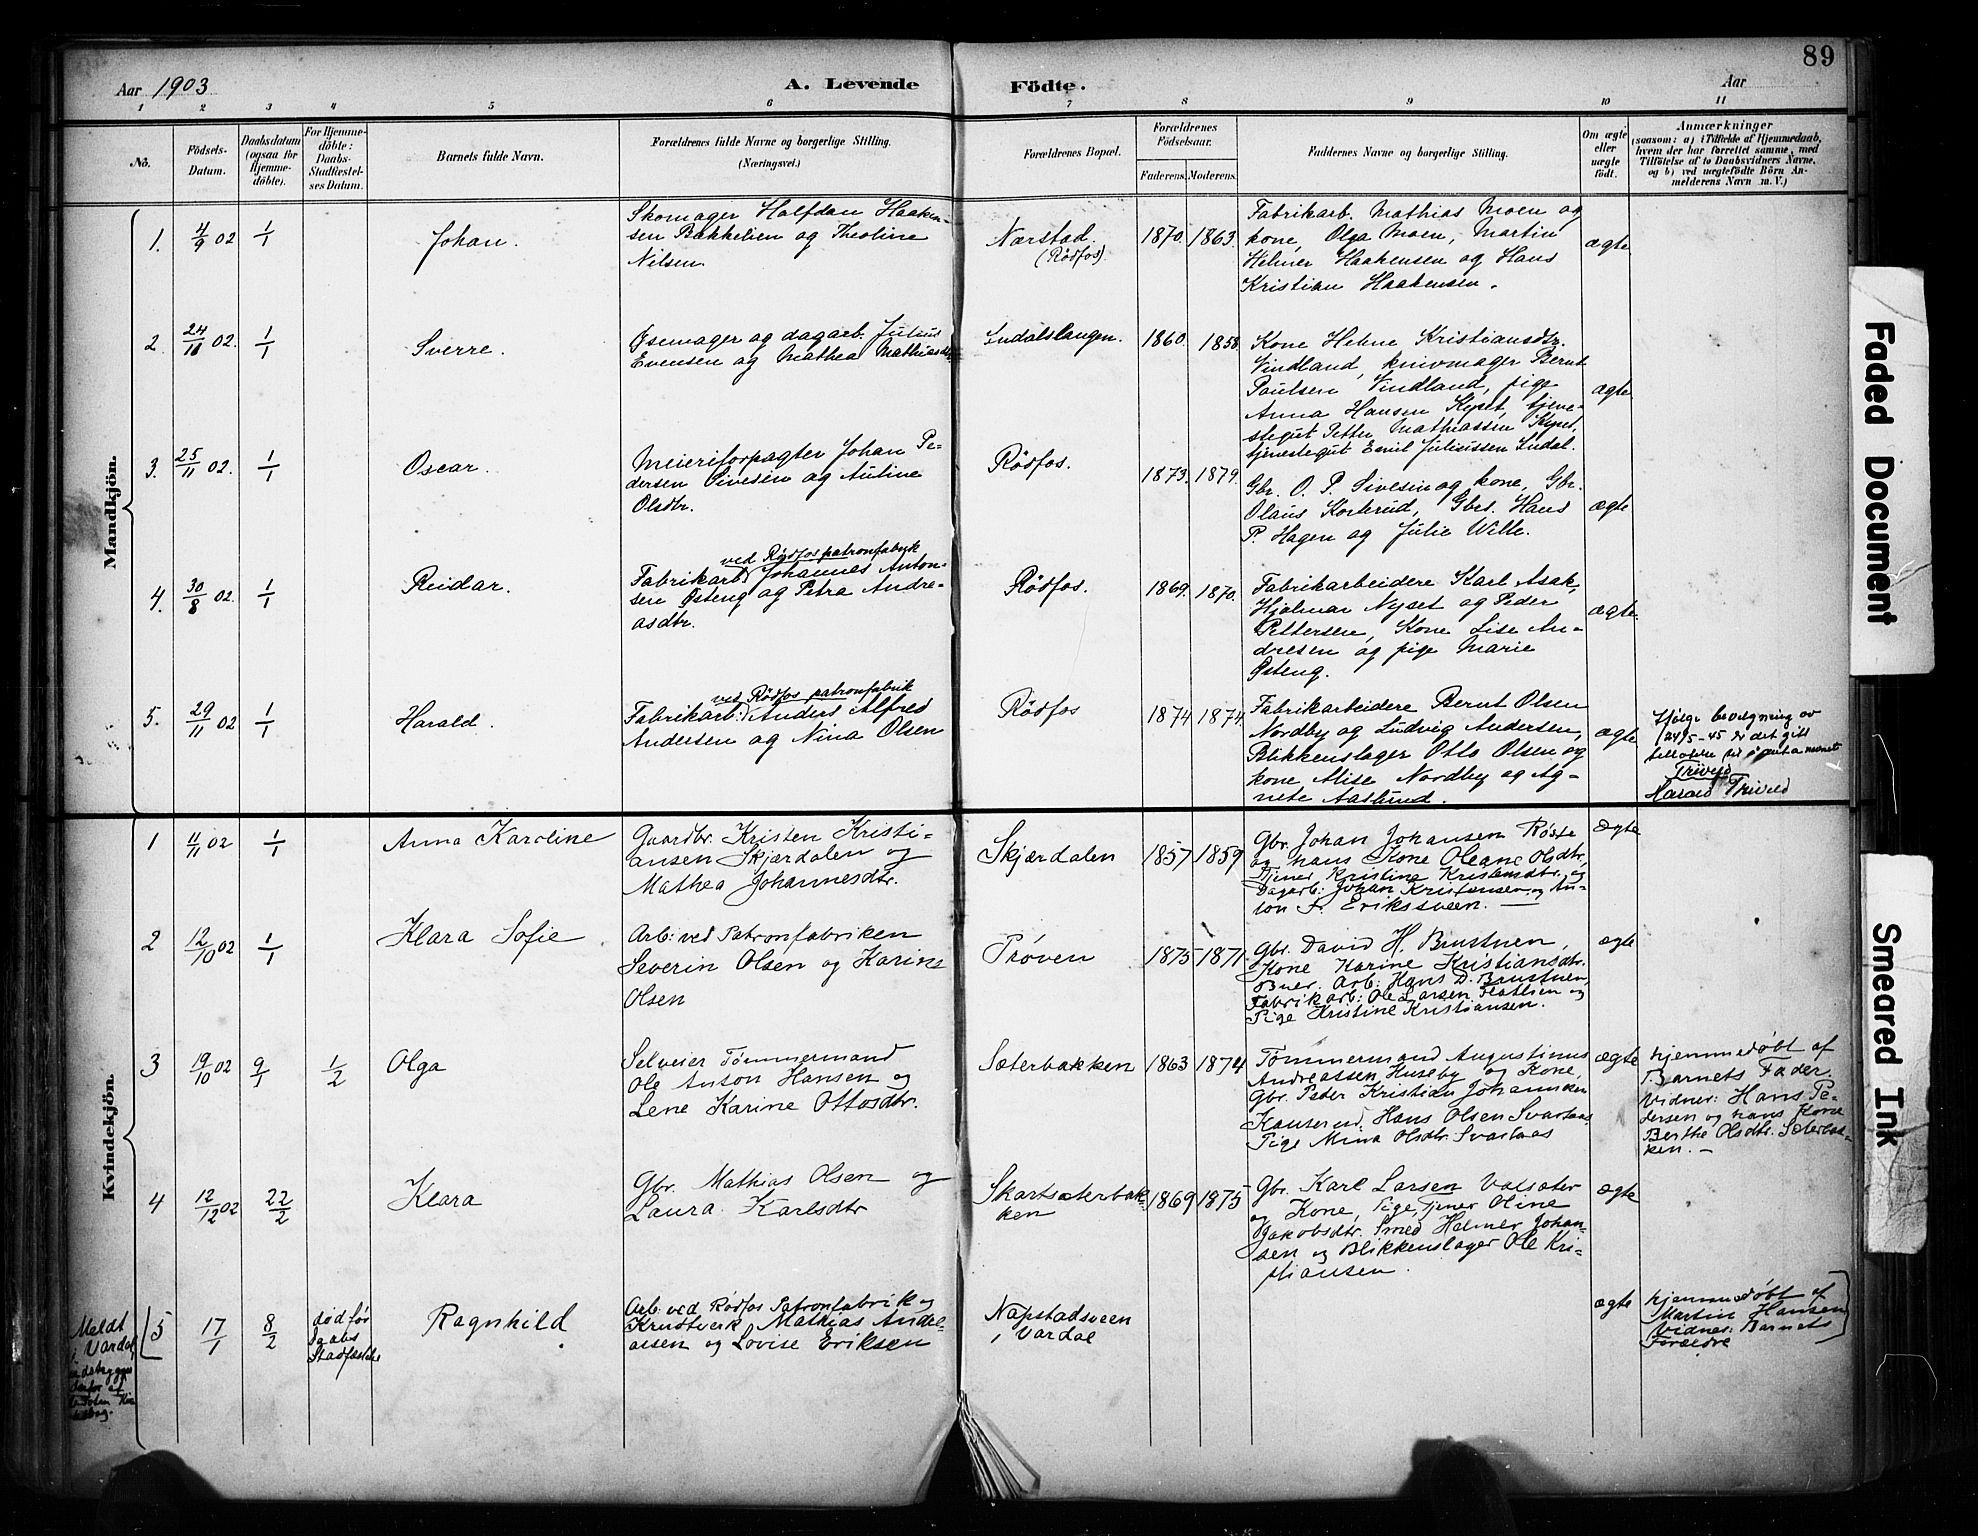 89
Aar 1903
A. Levende
Födte.
Aar
1 2 3 4 5 6 7 8 9 10 11
No.
Födsels-
Datum.
Daabsdatum
(ogsaa for
Hjemme-
döbte).
For Hjemme-
döbte:
Daabs-
Stadfæstel-
ses Datum.
Barnets fulde Navn.
Forældrenes fulde Navne og borgerlige Stilling.
(Næringsvei.)
Forældrenes Bopæl.
Forældrenes
Födselsaar.
Faderens. Moderens.
Faddernes Navne og borgerlige Stilling.
Om ægte
eller
uægte
födt.
Anmærkninger
(saasom: a) i Tilfælde af Hjemmedaab,
hvem der har forrettet samme, med
Tilföielse af to Daabsvidners Navne,
og b) ved uægtefödte Börn An-
melderens Navn m. V.)
Mandkjön.
1. 4/9 02 1/1
Johan.
Skomager Halfdan Haaken-
sen Bakkelien og Theoline
Nilsen.
Nærstad.
(Rödfos).
1870. 1863.
Fabrikarb. Mathias Moen og
kone, Olga Moen, Martin
Helmer Haakensen og Hans
Kristian Haakensen.
ægte.
2. 24/11 02. 1/1
Sverre.
Øsemager og dagarb. Julius
Evensen og Mathea Mathiasdtr.
Sndalslangen.
1860. 1858.
Kone Helene Kristiansdtr.
Vindland, knivmager Bernt
Paulsen Vindland, pige
Anna Hansen Kyset, tjene-
stegut Petter Mathiassen Kyset,
tjenestegut Emil Juliussen Sndal.
ægte.
3. 25/11 02. 1/1
Oscar.
Meieriforpagter Johan Pe-
dersen Sivesin og Auline
Olsdtr.
Rödfos.
1873. 1879.
Gbr. O. P. Sivesin og kone, Gbr.
Olaus Korterud, Gbrs. Hans
P. Hagen og Julie Wille.
ægte
4. 30/8 02. 1/1
Reidar.
ved Rödfos patronfabrik
Fabrikarb. Johannes Anton-
sen Østeng og Petra Andre-
asdtr.
Rödfos.
1869. 1870.
Fabrikarbeidere Karl Asak,
Hjalmar Nyset og Peder
Pettersen, Kone Lise An-
dresen og pige Marie
Østeng.
ægte.
5. 29/11 02. 1/1
Harald.
ved Rödfos patronfabrik
Fabrikarb. Anders Alfred
Andersen og Nina Olsen
Rödfos
1874 1874.
Fabrikarbeidere Bernt Olsen
Nordby og Ludvig Andersen,
Blikkenslager Otto Olsen og
kone Alise Nordby og Ag-
nete Aaslund.
ægte
Ifølge bevilgning av
24/5-45 er det gitt
tillatelse til å anta navnet
Triveld
Harald Triveld
Kvindekjön.
1 4/11 02 1/1
Anna Karoline
Gaardbr. Kristen Kristi-
ansen Skjærdalen og
Mathea Johannesdtr.
Skjærdalen
1857 1859
Gbr. Johan Johansen Röste
og hans Kone Oleane Olsdtr,
Tjener Kristine Kristensdtr. og
Dagarb: Johan Kristensen og An-
ton F. Erikssveen. —
ægte
2 12/10 02 1/1
Klara Sofie
Arb: ved Patronfabriken
Severin Olsen og Karine
Olsen
Prøven
1875 1871
Gbr. David H. Brustuen,
Kone Karine Kristiansdtr.
Buer. Arb: Hans D. Brustuen,
Fabrikarb: Ole Larsen Flatlien og
Pige Kristine Kristiansen.
ægte
3 19/10 02 9/1 1/2
Olga
Selveier Tømmermand
Ole Anton Hansen og
Lene Karine Ottosdtr.
Sæterbakken
1863 1874
Tømmermand Augustinus
Andreassen Huseby og Kone,
Gbr. Peter Kristian Johannesen
Kauserud, Hans Olsen Svartaas
Pige Mina Olsdtr. Svartaas
ægte
Hjemmedøbt af
Barnets Fader.
Vidner: Hans Pe-
dersen og hans Kone
Berthe Olsdtr. Sæterbak-
ken. —
4 12/12 02 22/2
Klara
Gbr. Mathias Olsen og
Laura Karlsdtr
Skartsæterbak-
ken
1869 1875
Gbr. Karl Larsen Valsæter
og Kone, Pige, Tjener Oline
Jakobsdtr. Smed Helmer Johan-
sen og Blikkenslager Ole Kri-
stiansen.
ægte
Meldt
i Vardal
5 17/1 8/2
død før
Daabs
Stadfæstelse
Ragnhild
Arb. ved Rødfos Patronfabrik og
Krudtverk Mathias Andre-
asen og Lovise Eriksen
Napstadsveen
i Vardal
ægte
Hjemmedøbt af
Martin Hansen
Vidner: Barnets
Forældre
Faded Document
Smeared Ink